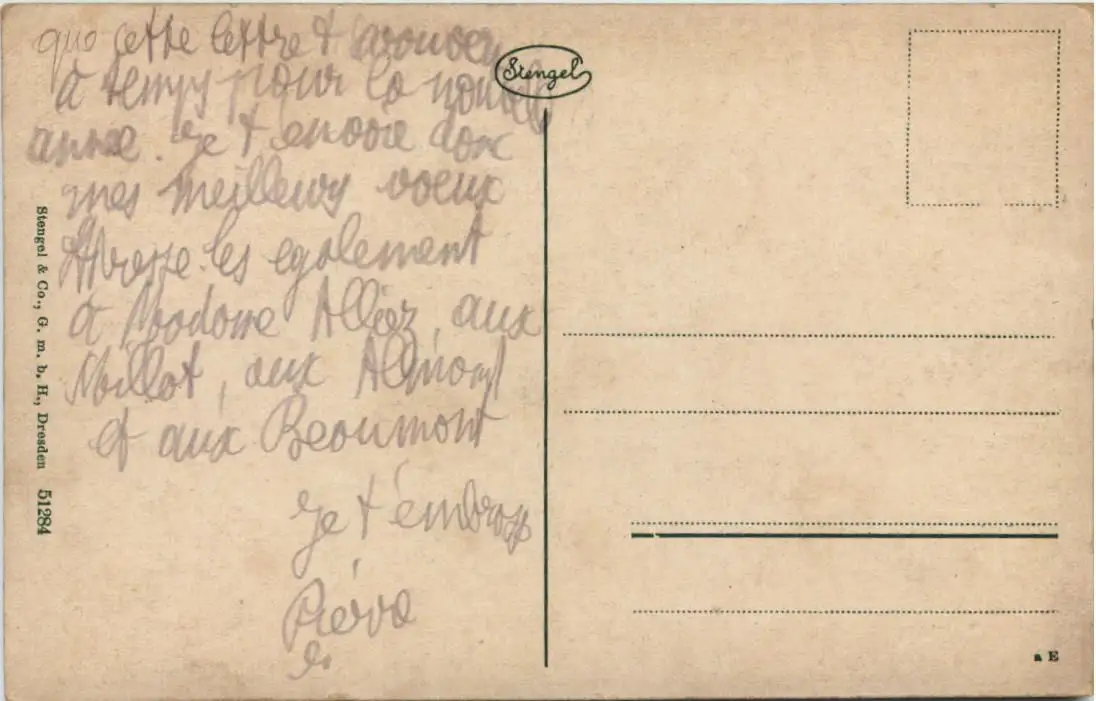 que cette lettre t'
à temps pour la nouvelle
année. Je t'envoie donc
mes meilleurs voeux
Adresse-les egalement
à Madame Alliez, aux
Millot, aux
et aux Beaumont
Je t'embrasse
Stengel
Stengel & Co., G. m. b. H., Dresden 51284
a E